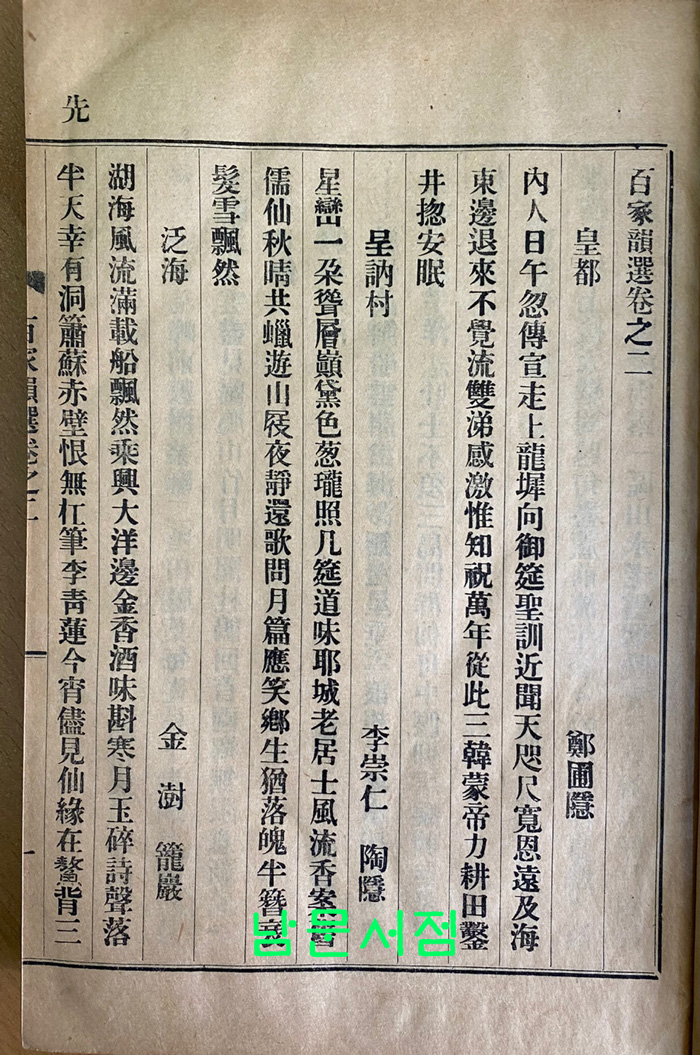 先
百家韻選卷之二
皇都 鄭圃隱
內人日午忽傳宣走上龍墀向御筵聖訓近聞天咫尺寬恩遠及海
東邊退來不覺流雙涕感激惟知祝萬年從此三韓蒙帝力耕田鑿
井揔安眠
呈訥村 李崇仁 陶隱
星巒一朶聳層巓黛色葱瓏照几筵道味耶城老居士風流香案舊
儒仙秋晴共蠟遊山屐夜靜還歌問月篇應笑鄕生猶落魄半簪衰
髮雪飄然
泛海 金澍 籠巖
湖海風流滿載船飄然乘興大洋邊金香酒味斟寒月玉碎詩聲落
半天幸有洞簫蘇赤壁恨無杠筆李靑蓮今宵儘見仙緣在鰲背三
百家韻選卷之二
一
남문서점